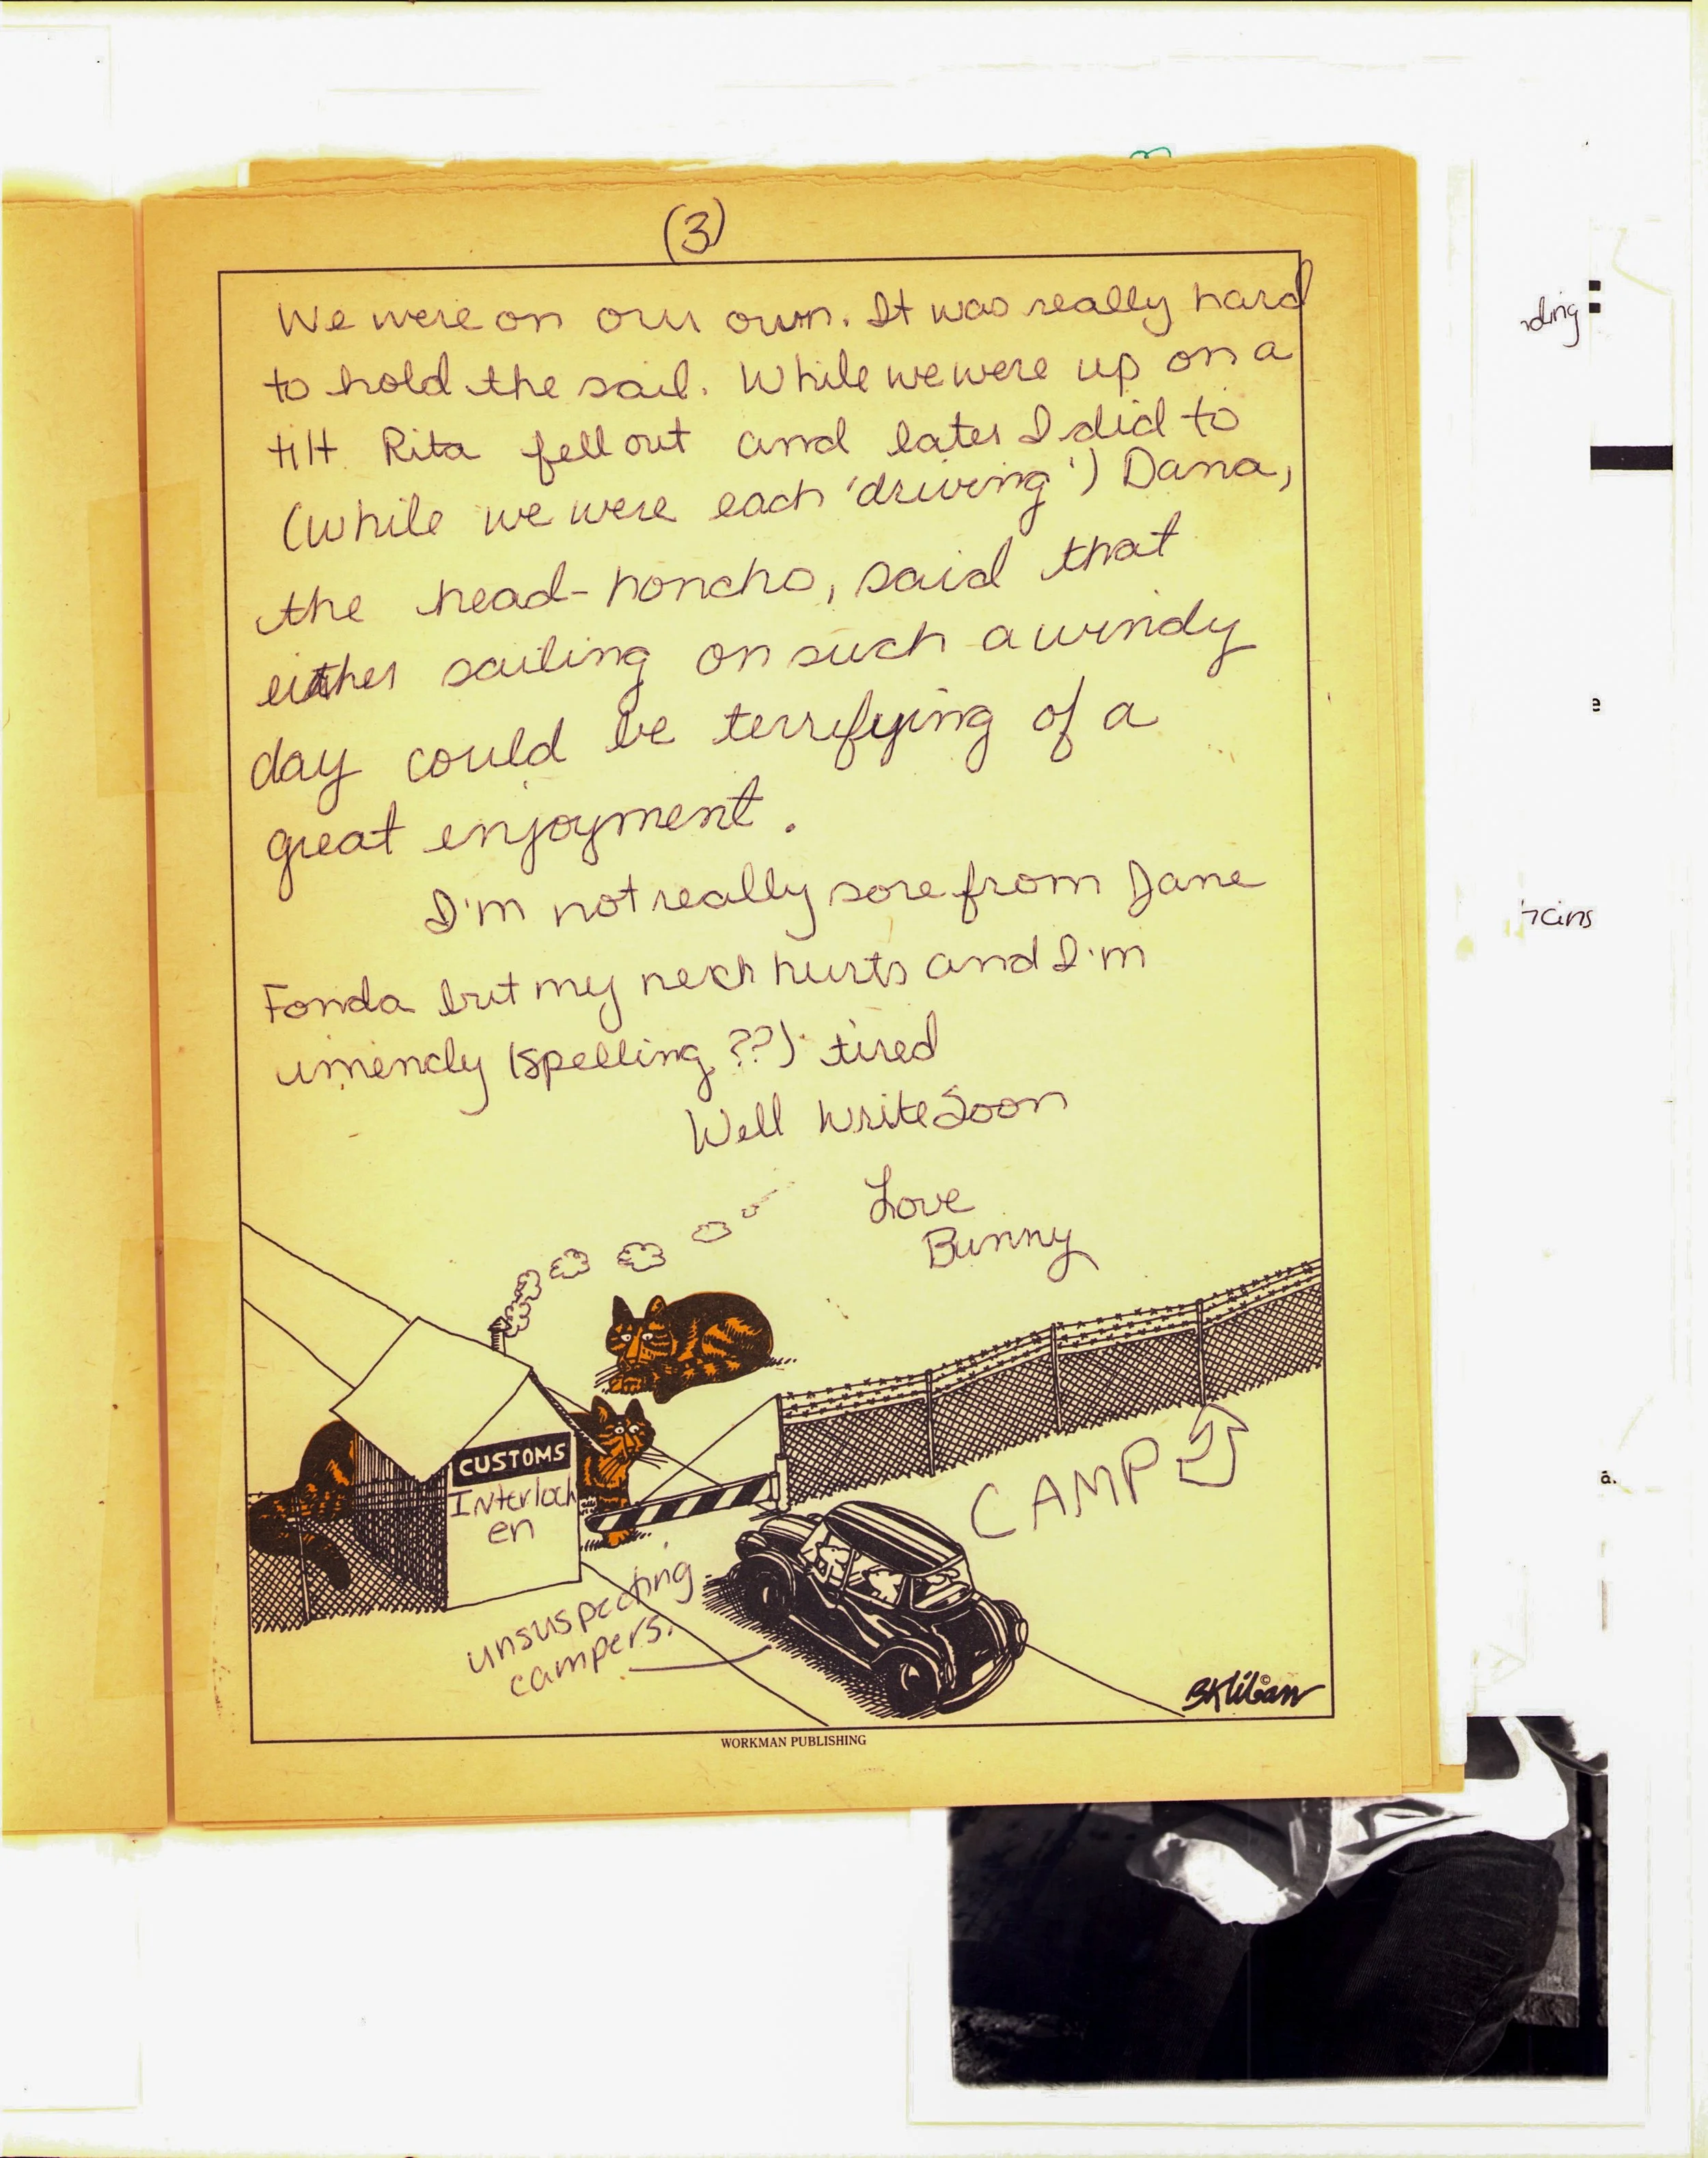 (3)
We were on our own. It was really hard
to hold the sail. While we were up on a
tilt Rita fell out and later I did to
(while we were each 'driving') Dana,
the head-honcho, said that
either sailing on such a windy
day could be terrifying of a
great enjoyment.
I'm not really sore from Jane
Fonda but my neck hurts and I'm
umencly (spelling??) tired
Well Write Soon
Love
Bunny
CUSTOMS
Interloch
en
CAMP
unsuspecting
campers.
BKliban ©
WORKMAN PUBLISHING